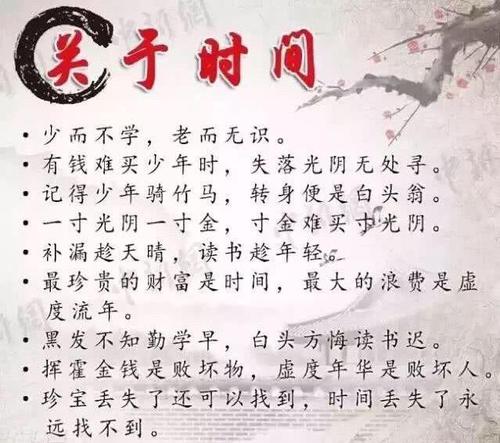 关于时间
· 少而不学，老而无识。
· 有钱难买少年时，失落光阴无处寻。
· 记得少年骑竹马，转身便是白头翁。
· 一寸光阴一寸金，寸金难买寸光阴。
· 补漏趁天晴，读书趁年轻。
· 最珍贵的财富是时间，最大的浪费是虚
度流年。
· 黑发不知勤学早，白头方悔读书迟。
· 挥霍金钱是败坏物，虚度年华是败坏人。
· 珍宝丢失了还可以找到，时间丢失了永
远找不到。